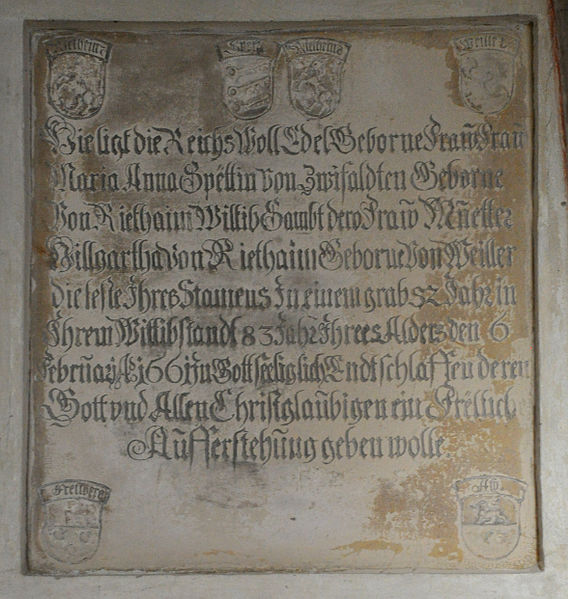 Rietheim
Spett
Rietheim
Weiller
Hie ligt die Reichs Woll Edel Geborne Fraw Fraw
Maria Anna Spëttin von Zwifaldten Geborne
Von Riethaim Wittib Sambt dero Fraw Mueter
Hillgartha von Riethaim Geborne Von Weiller
die leste Ihres Stamens In einem grab 52 Jahr in
Ihrem Wittibstandt 83 Jahr Ihrers Alders den 6
Februarÿ Aº 1661 In Gott seeliglich Endtschlaffen deren
Gott vnd Allen Christglaubigen ein Frëliche
Aufferstehung geben wolle.
Freyberg
Aw